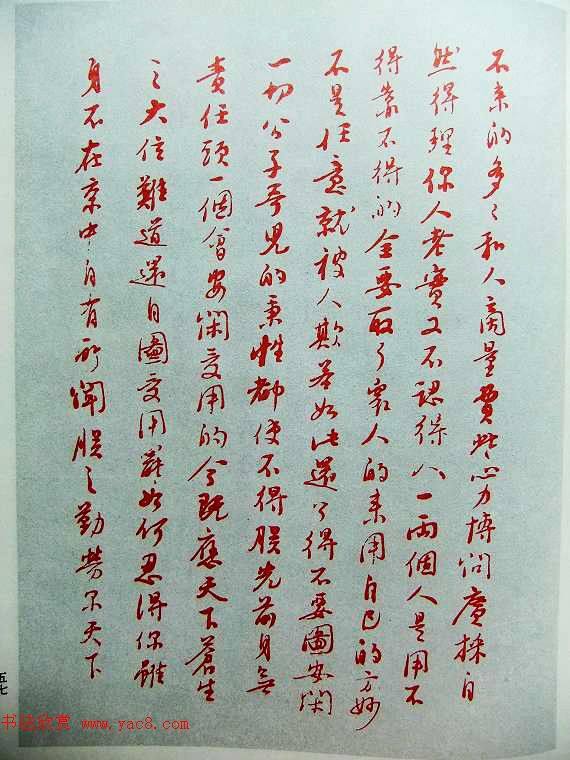 不来的多々和人商量費些心力博问廣採自
然得理你人老實又不認得人一兩個人是用不
得靠不得的全要取了衆人的来用自己的方妙
不是任意就被人欺若如此還了得不要圖安閑
一切公子哥兒的秉性都使不得朕先前身無
責任頭一個會安閑受用的今既應天下蒼生
之大位難道還自圖受用辭如何忍得你雖
身不在京中自有所闻朕之勤勞不天下
五七
书法欣赏 www.yac8.com